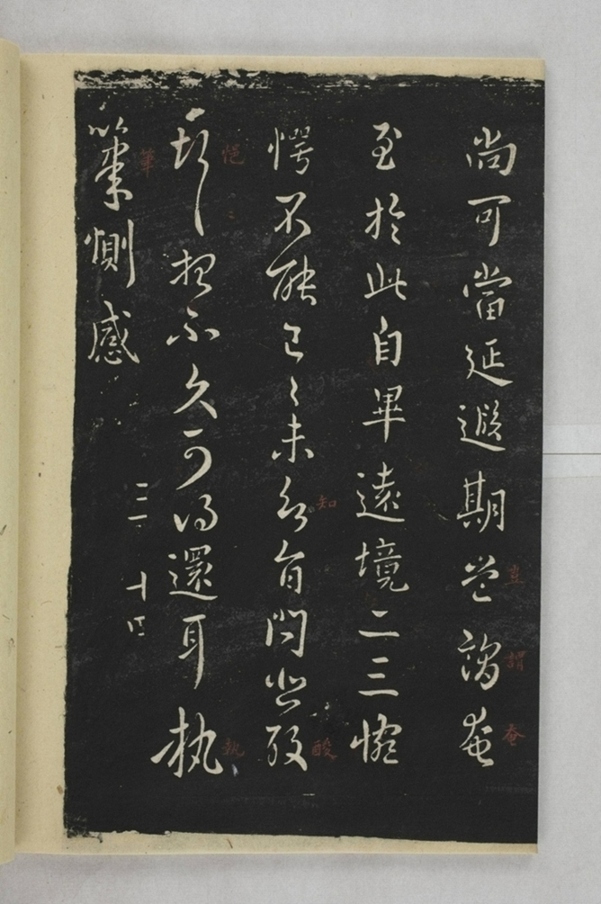 尚可當延遐期豈謂奄
豈 謂 奄
至於此自畢遠境二三惋
愕不能已〻未知旨問悲酸
知 酸
悒〻想不久可得還耳執
悒〻 執
筆惻感
筆
十四